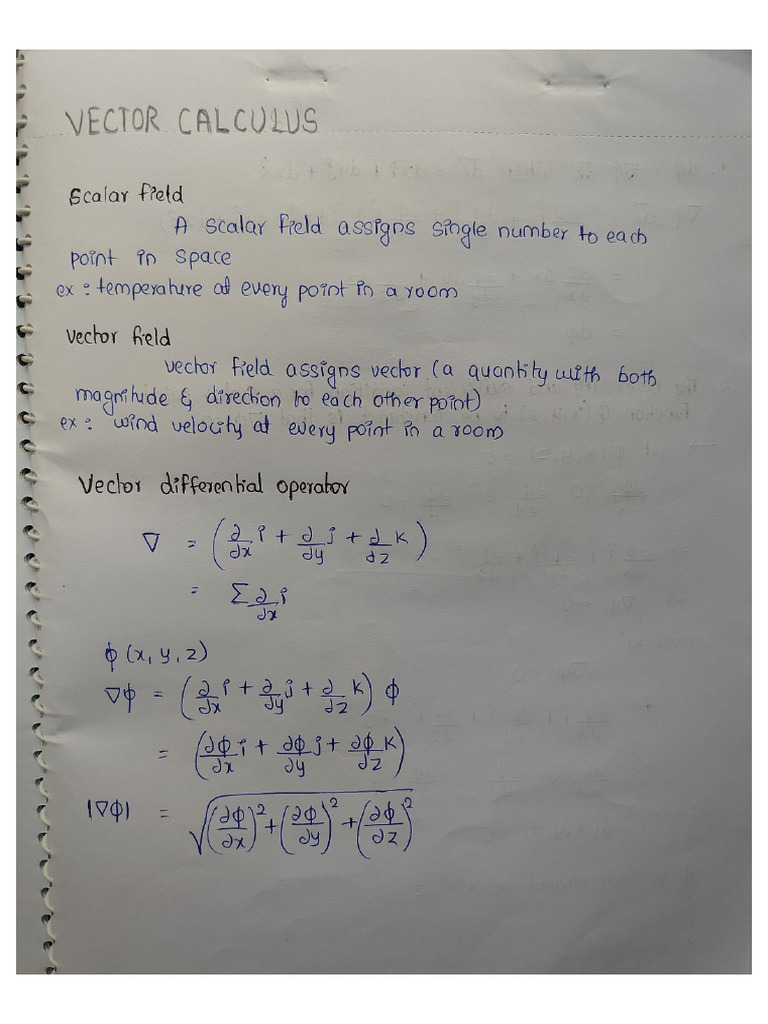 VECTOR CALCULUS
Scalar field
A scalar field assigns single number to each
point in space
ex : temperature at every point in a room
Vector field
vector field assigns vector (a quantity with both
magnitude & direction to each other point)
ex : wind velocity at every point in a room
Vector differential operator
∇ = (∂/∂x i + ∂/∂y j + ∂/∂z k)
= Σ ∂/∂x i
ϕ (x, y, z)
∇ϕ = (∂/∂x i + ∂/∂y j + ∂/∂z k) ϕ
= (∂ϕ/∂x i + ∂ϕ/∂y j + ∂ϕ/∂z k)
|∇ϕ| = √((∂ϕ/∂x)² + (∂ϕ/∂y)² + (∂ϕ/∂z)²)